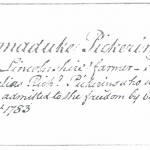 maduke Pickerin
Lincolnshire farmer
lias Rich^d. Pickering who w
admitted to the freedom by b
1753